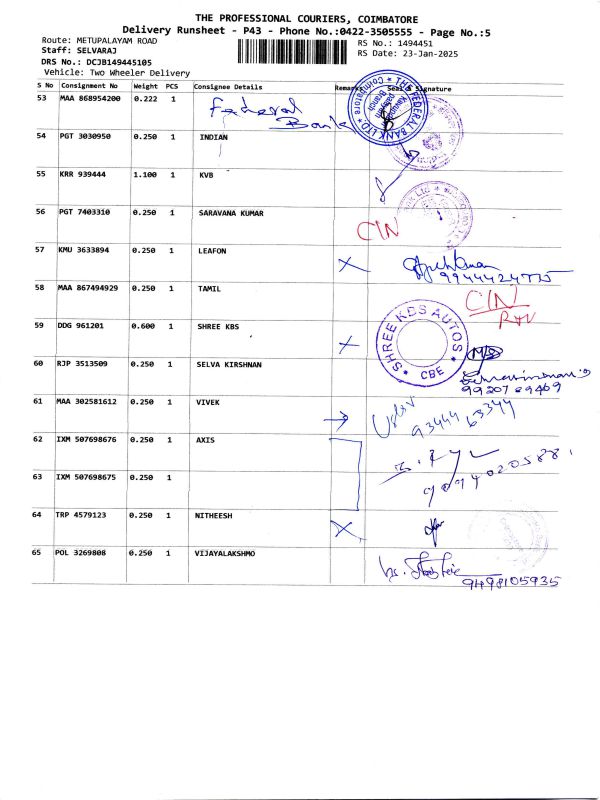 THE PROFESSIONAL COURIERS, COIMBATORE
Delivery Runsheet - P43 - Phone No.:0422-3505555 - Page No.:5
Route: METUPALAYAM ROAD RS No.: 1494451
Staff: SELVARAJ RS Date: 23-Jan-2025
DRS No.: DCJB149445105
Vehicle: Two Wheeler Delivery
S No Consignment No Weight PCS Consignee Details Remarks Seal & Signature
53 MAA 868954200 0.222 1 Federal Bank
THE FEDERAL BANK LTD Coimbatore Branch
54 PGT 3030950 0.250 1 INDIAN
55 KRR 939444 1.100 1 KVB
56 PGT 7403310 0.250 1 SARAVANA KUMAR CIN
57 KMU 3633894 0.250 1 LEAFON X
58 MAA 867494929 0.250 1 TAMIL CIN
59 DDG 961201 0.600 1 SHREE KBS X
SHREE KBS AUTOS * CBE *
60 RJP 3513509 0.250 1 SELVA KIRSHNAN
61 MAA 302581612 0.250 1 VIVEK 93444 63344
62 IXM 507698676 0.250 1 AXIS
63 IXM 507698675 0.250 1
64 TRP 4579123 0.250 1 NITHEESH X
65 POL 3269808 0.250 1 VIJAYALAKSHMO
9498105935